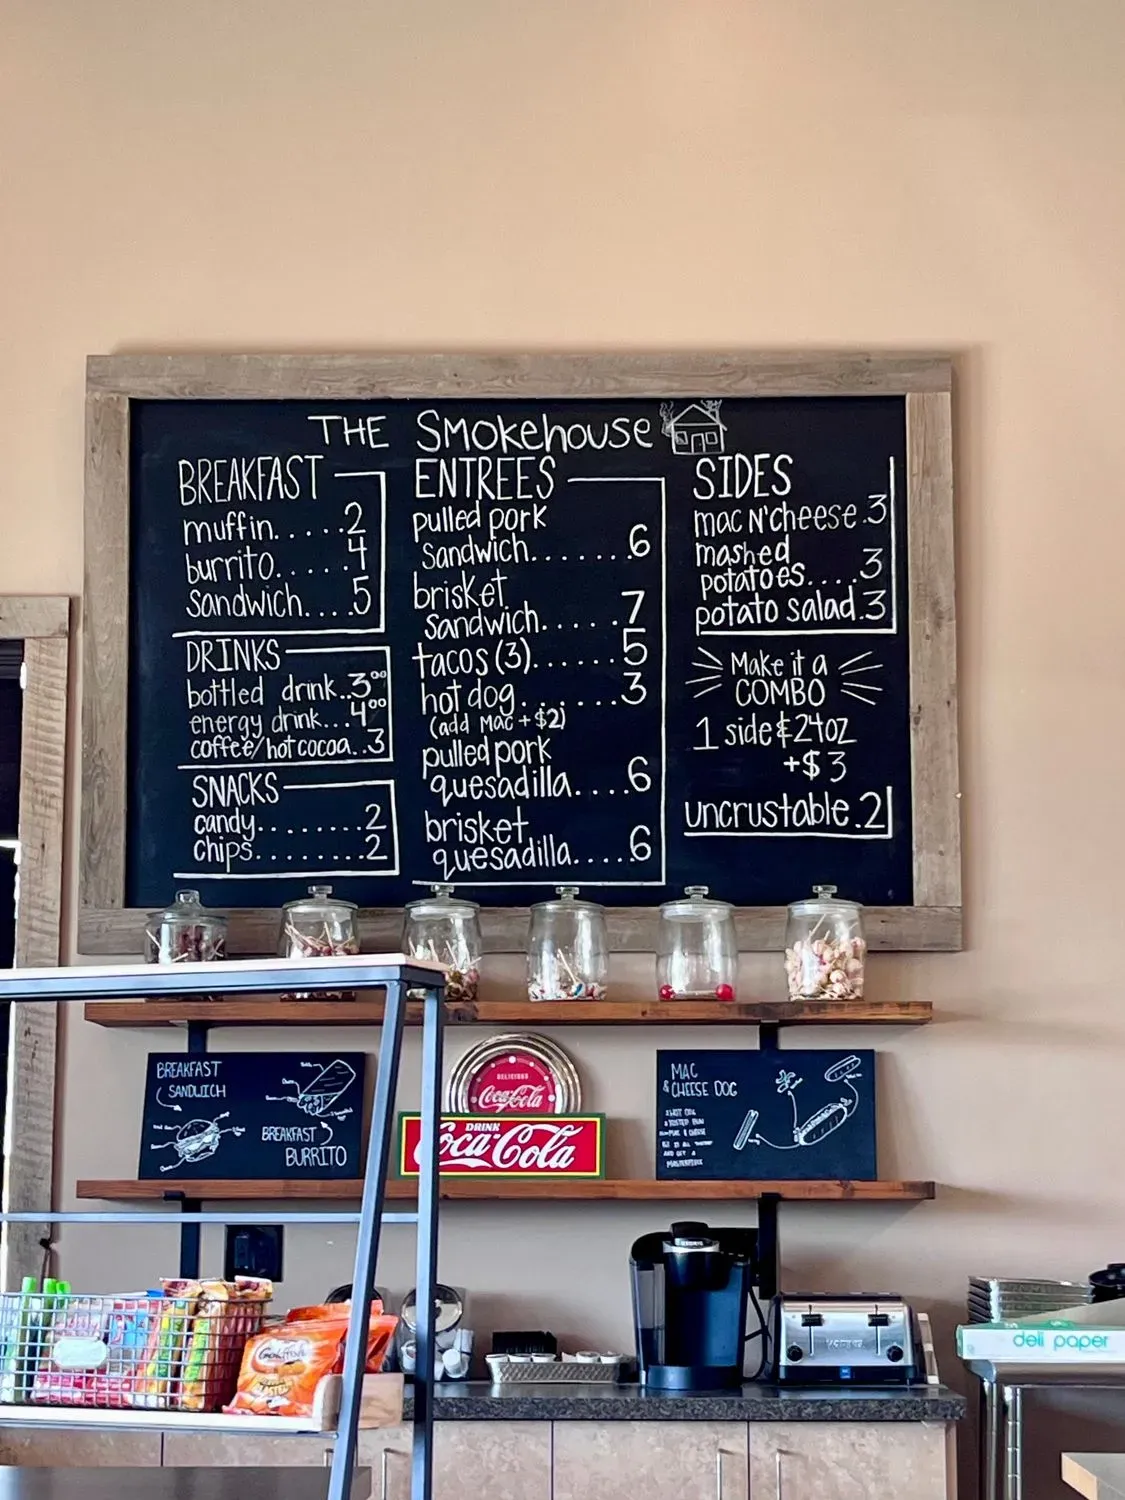 THE SMOKEHOUSE
BREAKFAST
muffin.....2
burrito.....4
sandwich....5
DRINKS
bottled drink..3⁰⁰
energy drink...4⁰⁰
coffee/hot cocoa..3
SNACKS
candy........2
chips........2
ENTREES
pulled pork
sandwich.......6
brisket
sandwich.....7
tacos (3)......5
hot dog.......3
(add Mac +$2)
pulled pork
quesadilla....6
brisket
quesadilla.....6
SIDES
mac N' cheese.3
mashed
potatoes....3
potato salad.3
Make it a
COMBO
1 side & 24oz
+$3
uncrustable.2
BREAKFAST
SANDWICH
BREAKFAST
BURRITO
DELICIOUS
Coca-Cola
DRINK
Coca-Cola
MAC
& CHEESE DOG
AND GET A
MASTERPIECE
Goldfish
KEURIG
deli paper